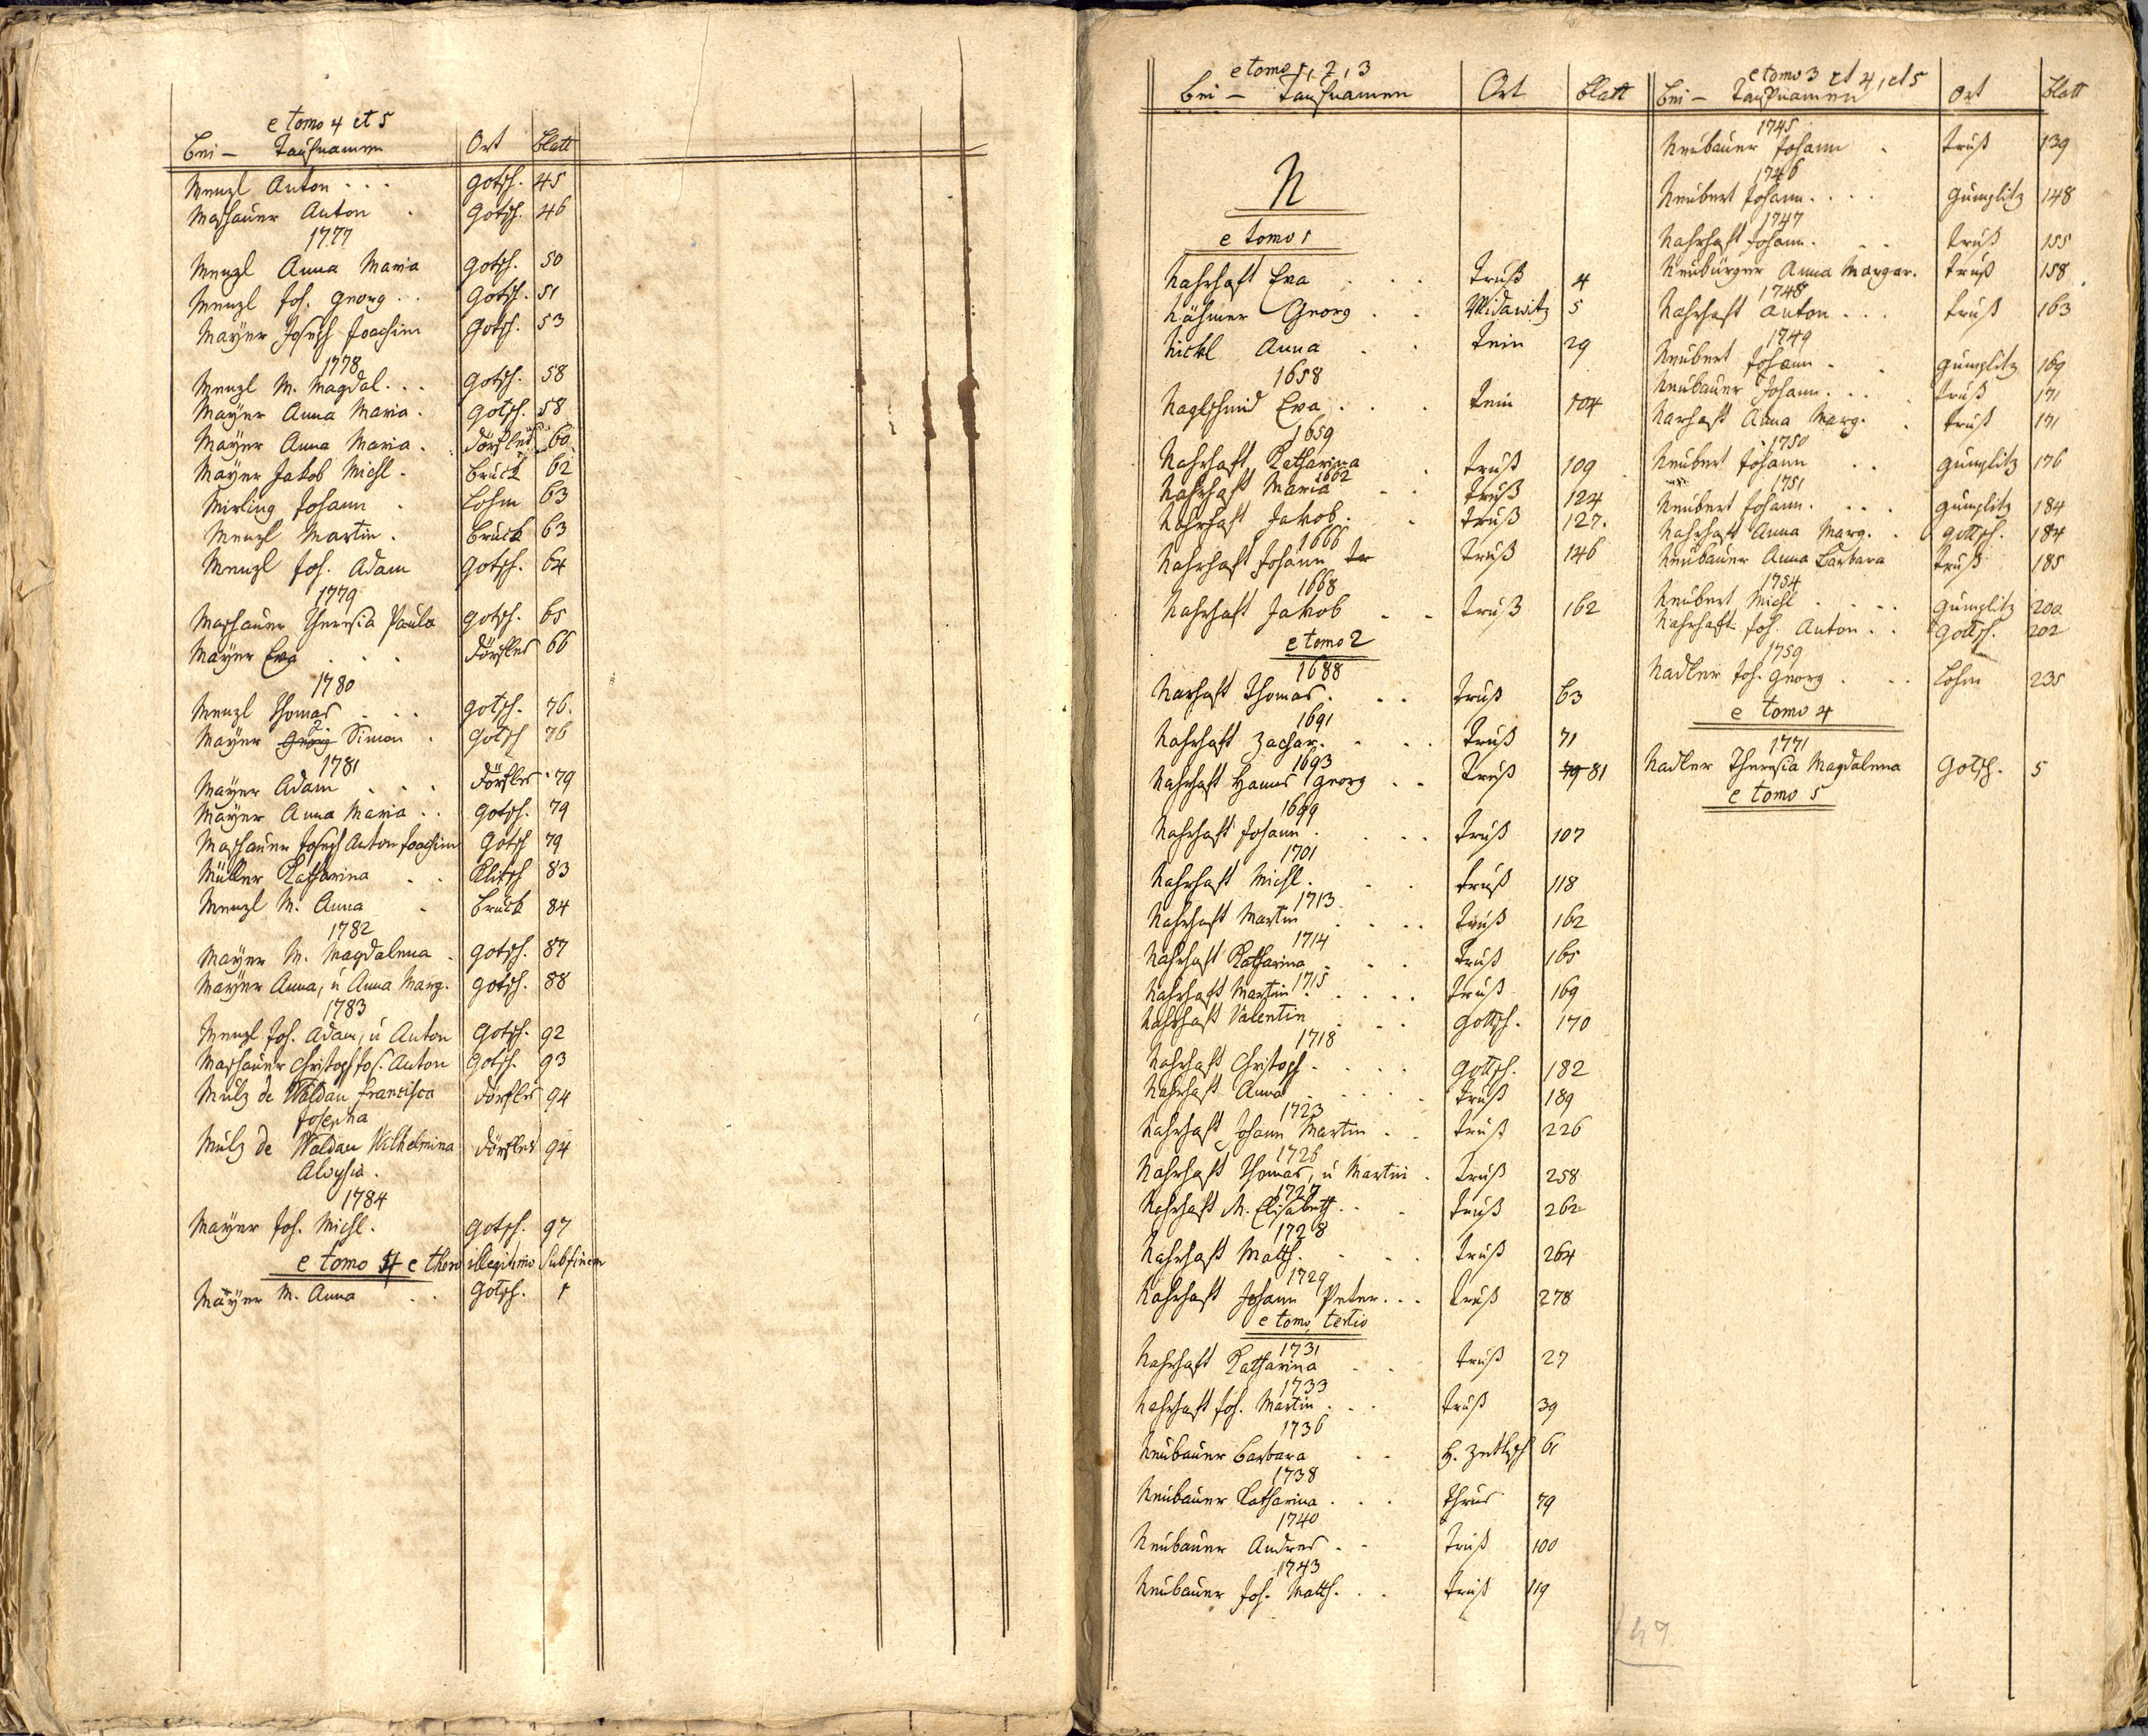 e tomo 4 et 5
Bei- Taufnamen Ort Blatt
Menzl Anton . . . Gotsch. 45
Maschauer Anton . Gotsch. 46
1777
Menzl Anna Maria Gotsch. 50
Menzl Joh. Georg . . Gotsch. 51
Mayer Joseph Joachim Gotsch. 53
1778
Menzl M. Magdal. . . Gotsch. 58
Mayer Anna Maria . Gotsch. 58
Mayer Anna Maria . Dörfles 60
Mayer Jakob Michl . Bruck 62
Mirling Johann . Lohm 63
Menzl Martin . Bruck 63
Menzl Joh. Adam Gotsch. 64
1779
Maschauer Theresia Paula Gotsch. 65
Mayer Eva . . . Dörfles 66
1780
Menzl Thomas . . . Gotsch. 76.
Mayer Georg Simon . Gotsch 76
1781
Mayer Adam . . . Dörfles 79
Mayer Anna Maria . . Gotsch. 79
Maschauer Joseph Anton Joachim Gotsch 79
Müller Katharina . . Klitsch 83
Menzl M. Anna . Bruck 84
1782
Mayer M. Magdalena . Gotsch. 87
Mayer Anna, u Anna Marg. Gotsch. 88
1783
Menzl Joh. Adam, u Anton Gotsch. 92
Maschauer Christoph Jos. Anton Gotsch. 93
Mulz de Waldau Francisca Dörfles 94
Josepha
Mulz de Waldau Wilhelmina Dörfles 94
Aloysia .
1784
Mayer Joh. Michl. Gotsch. 97
e tomo 4 e thoro illegitimo sub finem
Mayer M. Anna . . Gotsch. 1
e tomo 1, 2, 3
Bei - Taufnamen Ort Blatt
N
e tomo 1
Nahrhaft Eva . . . Truß 4
Nähmer Georg . . Widawitz 5
Nickl Anna . . Tein 29
1658
Naglschmid Eva . . . Tein 104
1659
Nahrhaft Katharina . Truß 109
1662
Nahrhaft Maria . . Truß 124
Nahrhaft Jakob . . Truß 127.
1666
Nahrhaft Johann Tr Truß 146
1668
Nahrhaft Jakob . . Truß 162
e tomo 2
1688
Narhaft Thomas . . . Truß 63
1691
Nahrhaft Zachar. . . . Truß 71
1693
Nahrhaft Hanns Georg . . Truß 79 81
1699
Nahrhaft Johann . . . . Truß 107
1701
Nahrhaft Michl . . . Truß 118
1713
Nahrhaft Martin . . . . Truß 162
1714
Nahrhaft Katharina . . . Truß 165
1715
Nahrhaft Martin . . . . Truß 169
Nahrhaft Valentin . . . Gottsch. 170
1718
Nahrhaft Christoph . . . . Gottsch. 182
Nahrhaft Anna . . . . Truß 189
1723
Nahrhaft Johann Martin . . Truß 226
1726
Nahrhaft Thomas, u Martin . Truß 258
1727
Nahrhaft M. Elisabeth . . . Truß 262
1728
Nahrhaft Matth. . . . Truß 264
1729
Nahrhaft Johann Peter . . . Truß 278
e tomo tertio
1731
Nahrhaft Katharina . . Truß 27
1733
Nahrhaft Joh. Martin . . . Truß 39
1736
Neubauer Barbara . . 61
1738
Neubauer Katharina . . . Thrus 79
1740
Neubauer Andres . . Truß 100
1743
Neubauer Joh. Matth. . . Truß 119
e tomo 3 et 4, et 5
Bei - Taufnamen Ort Blatt
1745
Neubauer Johann . Truß 139
1746
Neubert Johann . . . . Gumplitz 148
1747
Nahrhaft Johann . . . Truß 155
Neubürger Anna Margar. Truß 158
1748
Nahrhaft Anton . . . Truß 163
1749
Neubert Johann . . Gumplitz 169
Neubauer Johann . . . Truß 171
Narhaft Anna Marg. . Truß 171
1750
Neubert Johann . . Gumplitz 176
1751
Neubert Johann . . . . Gumplitz 184
Nahrhaft Anna Marg. . Gottsch. 184
Neubauer Anna Barbara Truß 185
1754
Neubert Michl . . . . Gumplitz 200
Nahrhaft Joh. Anton . . Gottsch. 202
1759
Nadler Joh. Georg . . . Lohm 235
e tomo 4
1771
Nadler Theresia Magdalena Gotsch. 5
e tomo 5
49